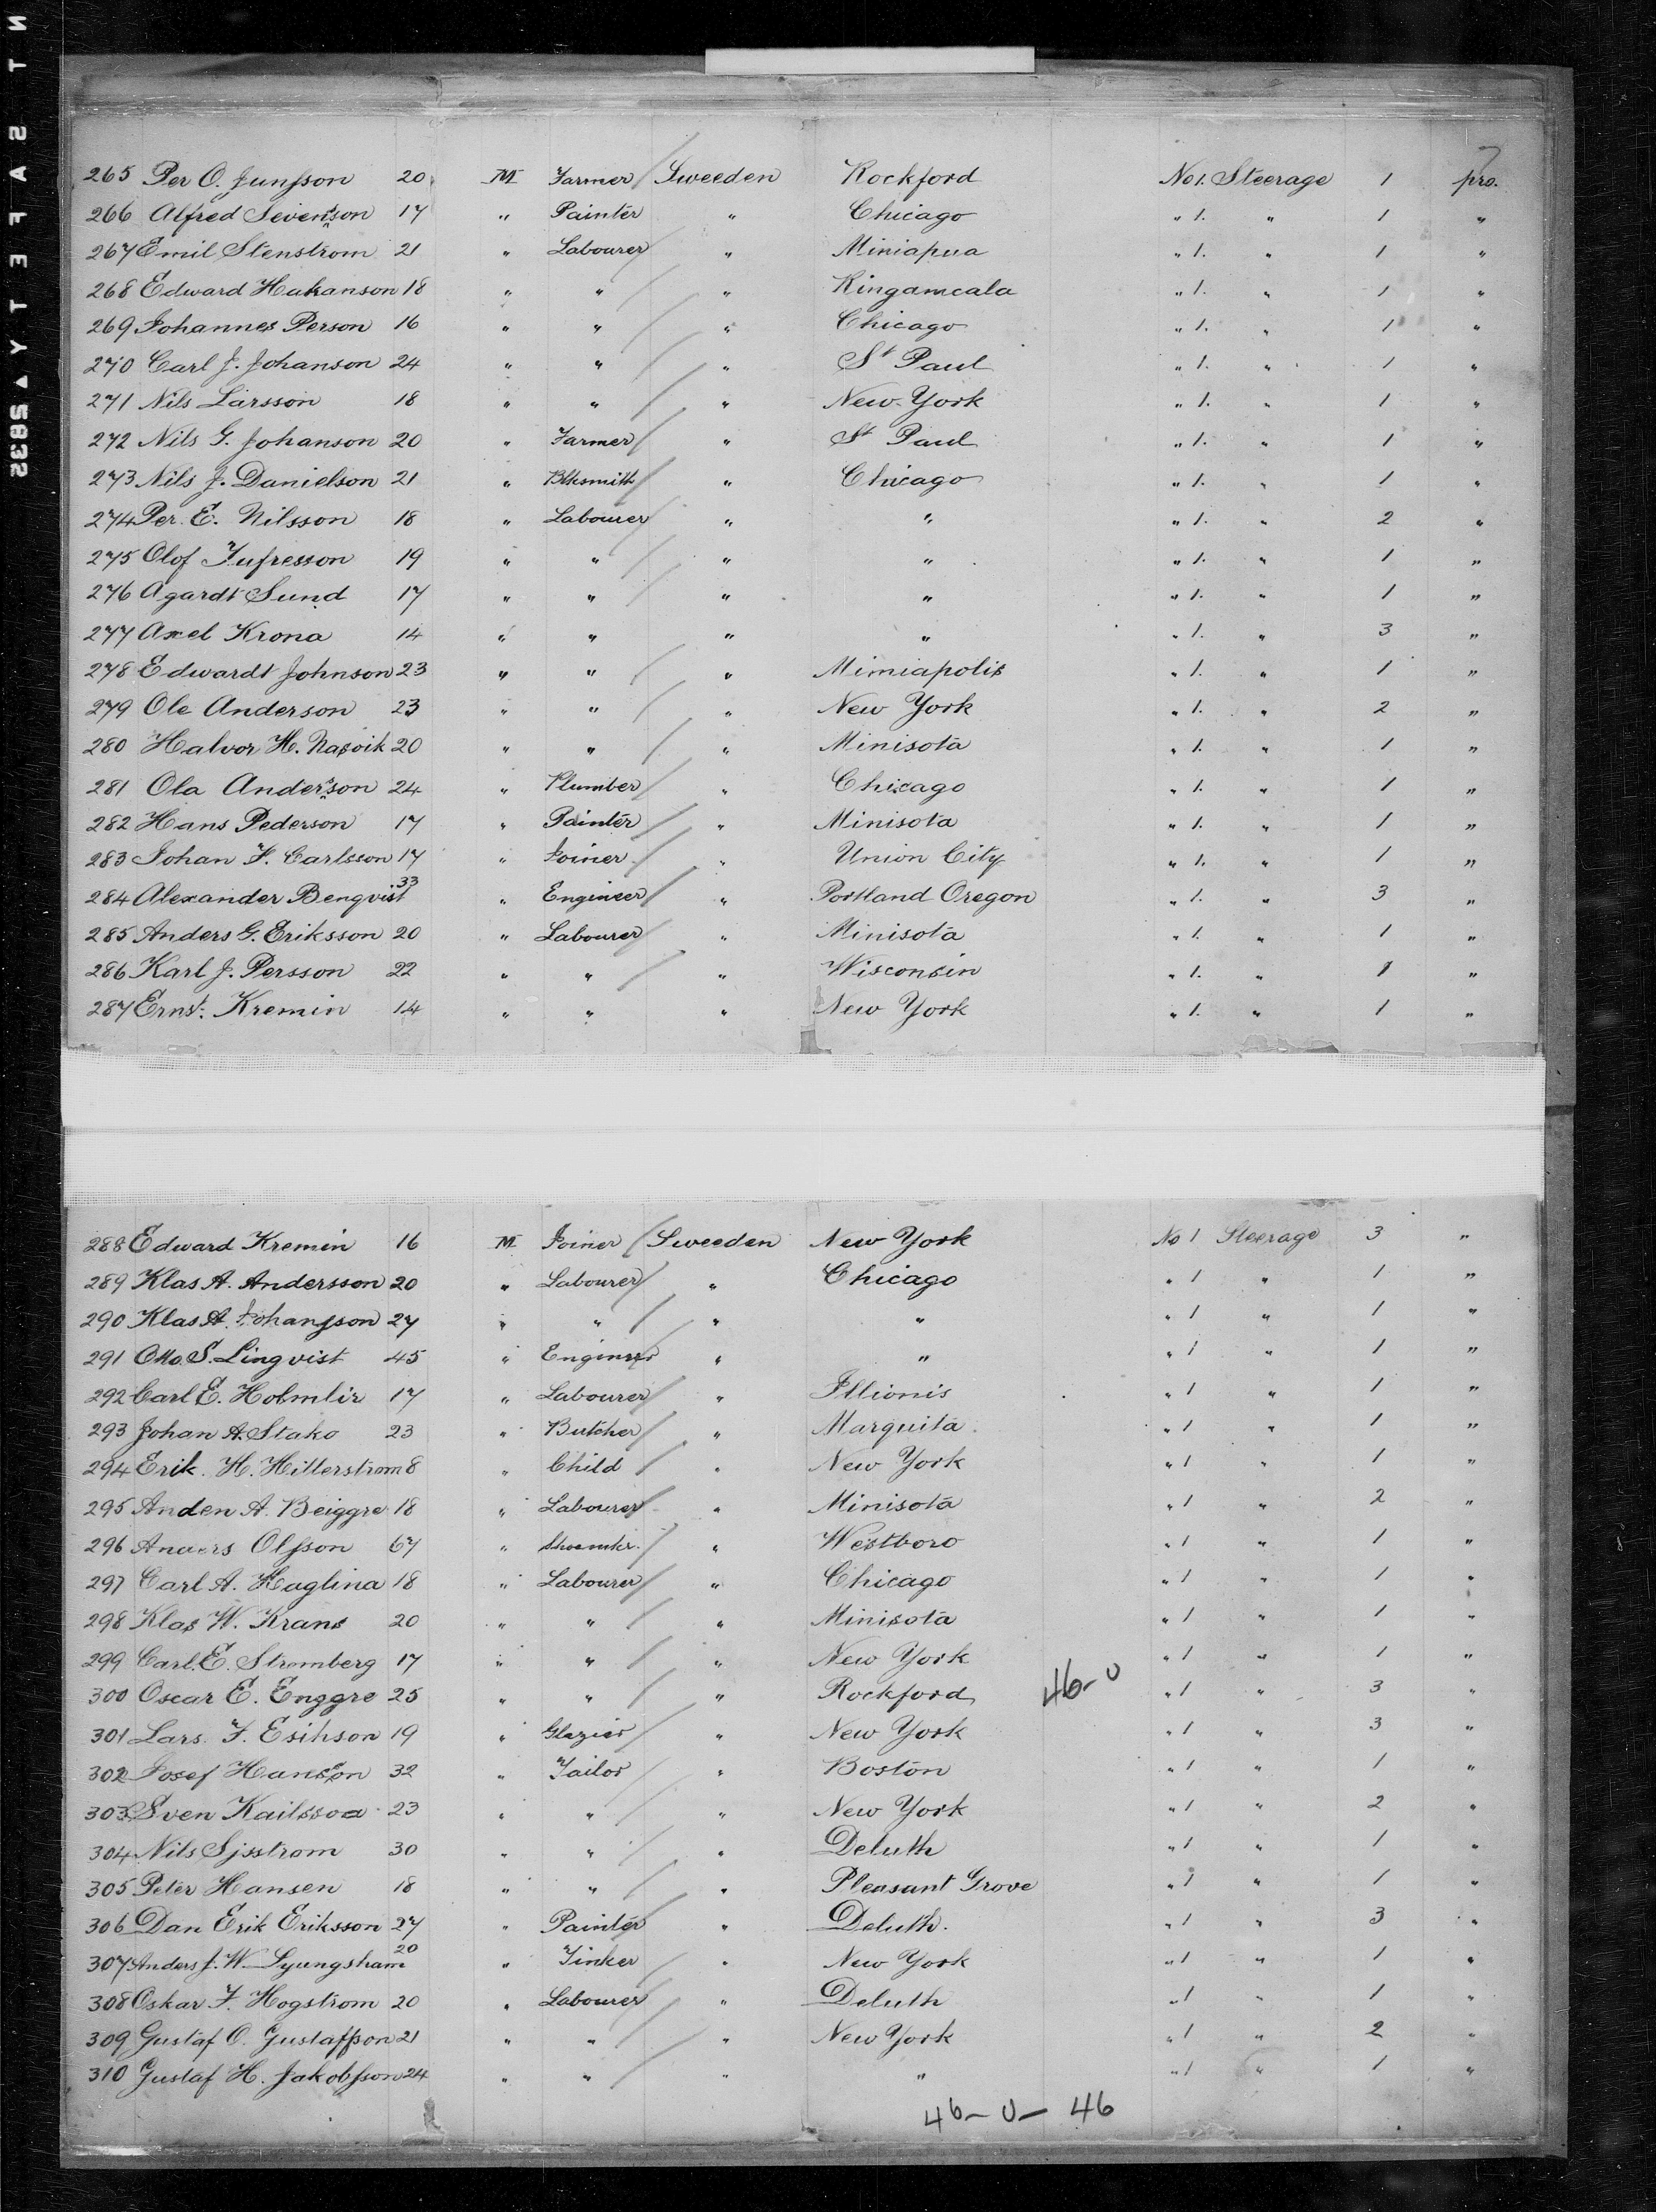 265 Per O. Junsson 20 M Farmer Sweeden Rockford No 1. Steerage 1 pro.
266 Alfred Sevenson 17 " Painter " Chicago " 1. " 1 "
267 Emil Stenstrom 21 " Labourer " Miniapua " 1. " 1 "
268 Edward Hakanson 18 " " " Kingamcala " 1. " 1 "
269 Johannes Person 16 " " " Chicago " 1. " 1 "
270 Carl J. Johanson 24 " " " St Paul " 1. " 1 "
271 Nils Larsson 18 " " " New York " 1. " 1 "
272 Nils G. Johanson 20 " Farmer " St Paul " 1. " 1 "
273 Nils J. Danielson 21 " Blksmith " Chicago " 1. " 1 "
274 Per. E. Nilsson 18 " Labourer " " " 1. " 2 "
275 Olof Tufresson 19 " " " " " 1. " 1 "
276 Agardt Sund 17 " " " " " 1. " 1 "
277 Axel Krona 14 " " " " " 1. " 3 "
278 Edwardt Johnson 23 " " " Mimiapolis " 1. " 1 "
279 Ole Anderson 23 " " " New York " 1. " 2 "
280 Halvor H. Nasvik 20 " " " Minisota " 1. " 1 "
281 Ola Anderson 24 " Plumber " Chicago " 1. " 1 "
282 Hans Pederson 17 " Painter " Minisota " 1. " 1 "
283 Johan F. Carlsson 17 " Joiner " Union City " 1. " 1 "
284 Alexander Bengvist 33 " Engineer " Portland Oregon " 1. " 3 "
285 Anders G. Eriksson 20 " Labourer " Minisota " 1. " 1 "
286 Karl J. Persson 22 " " " Wisconsin " 1. " 1 "
287 Ernst. Kremin 14 " " " New York " 1. " 1 "
288 Edward Kremin 16 M Joiner Sweeden New York No 1 Steerage 3 "
289 Klas A. Andersson 20 " Labourer " Chicago " 1 " 1 "
290 Klas A. Johansson 27 " " " " " 1 " 1 "
291 Otto. S. Lingvist 45 " Engineer " " " 1 " 1 "
292 Carl E. Holmlir 17 " Labourer " Illionis " 1 " 1 "
293 Johan A. Stako 23 " Butcher " Marquita " 1 " 1 "
294 Erik. H. Hillerstrom 8 " Child " New York " 1 " 1 "
295 Anden A. Beiggre 18 " Labourer " Minisota " 1 " 2 "
296 Anders Olsson 67 " Shoemkr. " Westboro " 1 " 1 "
297 Carl A. Haglina 18 " Labourer " Chicago " 1 " 1 "
298 Klas W. Krans 20 " " " Minisota " 1 " 1 "
299 Carl. E. Stromberg 17 " " " New York " 1 " 1 "
300 Oscar E. Enggre 25 " " " Rockford 46-0 " 1 " 3 "
301 Lars. F. Esihson 19 " Glazier " New York " 1 " 3 "
302 Josef Hanson 32 " Tailor " Boston " 1 " 1 "
303 Sven Kailssoa 23 " " " New York " 1 " 2 "
304 Nils Sjsstrom 30 " " " Deluth " 1 " 1 "
305 Peter Hansen 18 " " " Pleasant Grove " 1 " 1 "
306 Dan Erik Eriksson 27 " Painter " Deluth. " 1 " 3 "
307 Anders J. W. Lyungsham 20 " Tinker " New York " 1 " 1 "
308 Oskar F. Hogstrom 20 " Labourer " Deluth " 1 " 1 "
309 Gustaf O. Gustafsson 21 " " " New York " 1 " 2 "
310 Gustaf H. Jakobsson 24 " " " " " 1 " 1 "
46-0-46